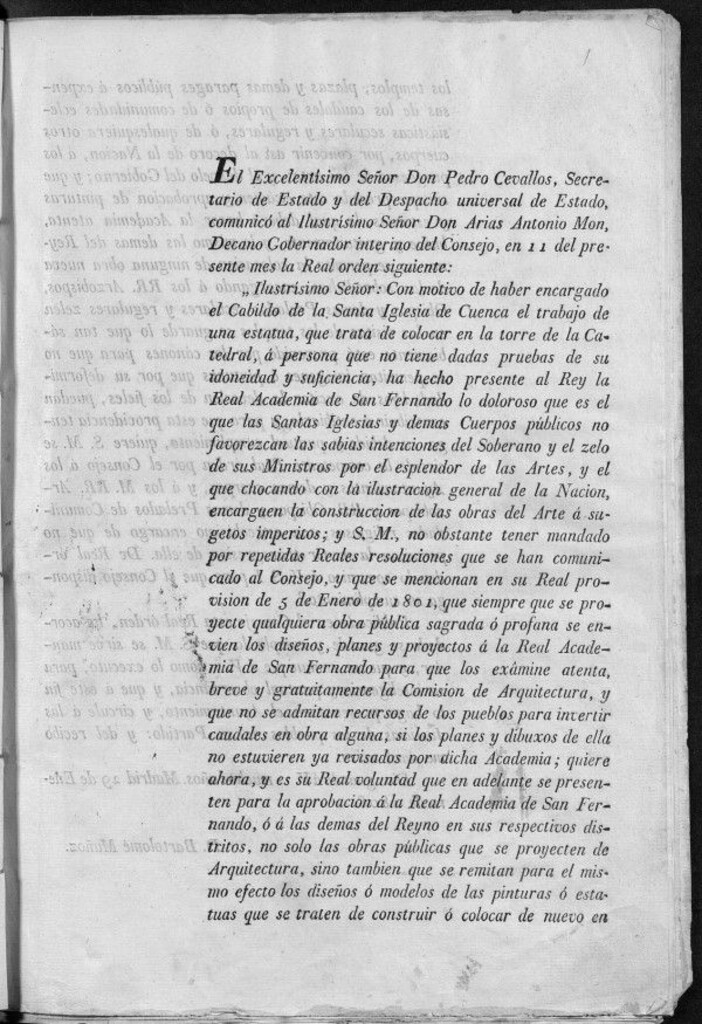 1
El Excelentísimo Señor Don Pedro Cevallos, Secre-
tario de Estado y del Despacho universal de Estado,
comunicó al Ilustrísimo Señor Don Arias Antonio Mon,
Decano Gobernador interino del Consejo, en 11 del pre-
sente mes la Real orden siguiente:
„Ilustrísimo Señor: Con motivo de haber encargado
el Cabildo de la Santa Iglesia de Cuenca el trabajo de
una estatua, que trata de colocar en la torre de la Ca-
tedral, á persona que no tiene dadas pruebas de su
idoneidad y suficiencia, ha hecho presente al Rey la
Real Academia de San Fernando lo doloroso que es el
que las Santas Iglesias y demas Cuerpos públicos no
favorezcan las sabias intenciones del Soberano y el zelo
de sus Ministros por el esplendor de las Artes, y el
que chocando con la ilustracion general de la Nacion,
encarguen la construccion de las obras del Arte á su-
getos imperitos; y S. M., no obstante tener mandado
por repetidas Reales resoluciones que se han comuni-
cado al Consejo, y que se mencionan en su Real pro-
vision de 5 de Enero de 1801, que siempre que se pro-
yecte qualquiera obra pública sagrada ó profana se en-
vien los diseños, planes y proyectos á la Real Acade-
mia de San Fernando para que los exâmine atenta,
breve y gratuitamente la Comision de Arquitectura, y
que no se admitan recursos de los pueblos para invertir
caudales en obra alguna, si los planes y dibuxos de ella
no estuvieren ya revisados por dicha Academia; quiere
ahora, y es su Real voluntad que en adelante se presen-
ten para la aprobacion á la Real Academia de San Fer-
nando, ó á las demas del Reyno en sus respectivos dis-
tritos, no solo las obras públicas que se proyecten de
Arquitectura, sino tambien que se remitan para el mis-
mo efecto los diseños ó modelos de las pinturas ó esta-
tuas que se traten de construir ó colocar de nuevo en